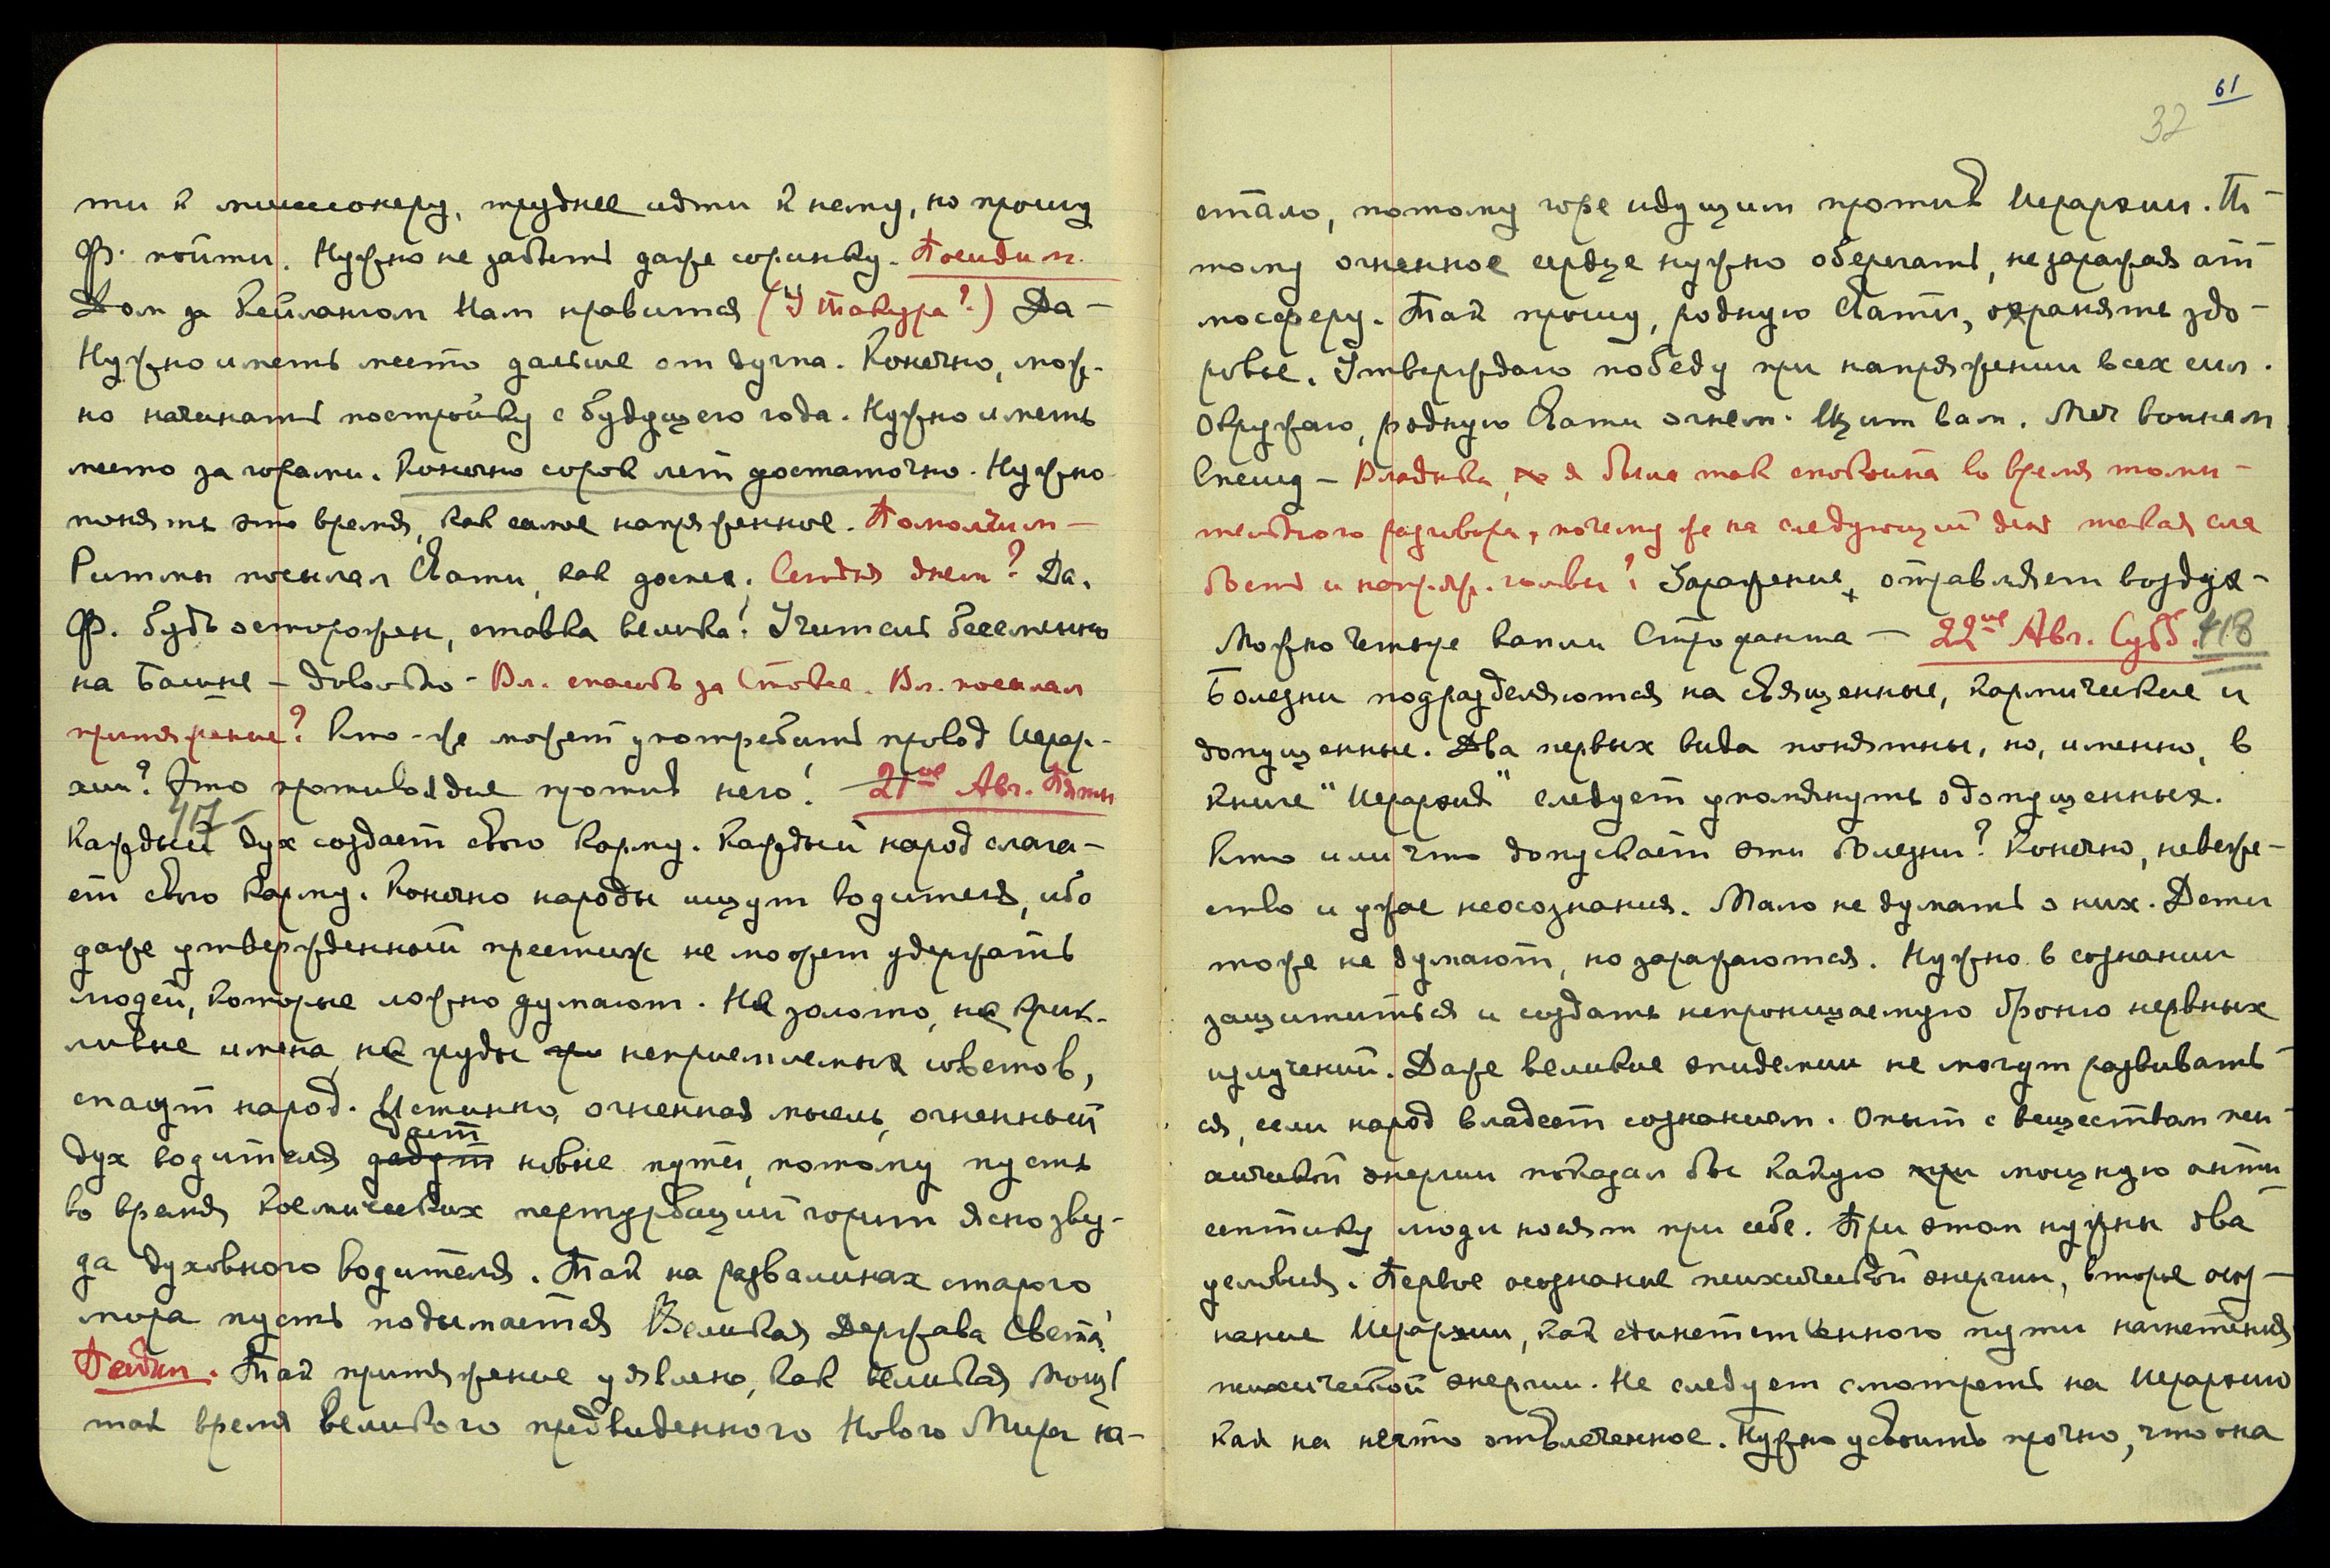 ти к миссионеру, труднее идти к нему, но прошу
Ф. пойти. Нужно не забыть даже соринку. Посидим.
Дом за Кейлангом Нам нравится (У Такура?) Да –
Нужно иметь место дальше от дугпа. Конечно, мож-
но начинать постройку с будущего года. Нужно иметь
место за горами. Конечно сорок лет достаточно. Нужно
понять это время, как самое напряженное. Помолчим –
Ритмы посылал Свати, как доспех. Сегодня днем? Да.
Ф. будь осторожен, ставка велика! Учитель бессменно
на Башне – довольно – Вл. спасибо за Стокс. Вл. посылал
притяжение? Кто-же может употребить провод Иерар-
хии? Это противоядие против него! 21ое Авг. Пятн
417 –
Каждый дух создает свою карму. Каждый народ слага-
ет свою карму. Конечно народы ищут водителя, ибо
даже утвержденный престиж не может удержать
людей, которые ложно думают. Не золото, не крик-
ливые имена, не груды гр неприемлемых советов,
спасут народ. Истинно, огненная мысль, огненный
дает
дух водителя дадут новые пути, потому пусть
во время космических пертурбаций горит ясно звез-
да духовного водителя. Так на развалинах старого
мира пусть подымается Великая Держава Света!
Посидим. Так притяжение уявлено, как великая мощь
так время великого предвиденного Нового Мира на-
61
32
стало, потому горе идущим против Иерархии. По-
тому огненное сердце нужно оберегать, не заражая ат-
мосферу. Так прошу, родную Свати, охранять здо-
ровье. Утверждаю победу при напряжении всех сил.
Окружаю, родную Свати огнем. Щит вам. Меч воинам
Спешу – Владыка, я была так спокойна во время томи-
тельного разговора, почему же на следующий день такая сла
бость и напряж. головы? Заражение, отравляет воздух –
Можно четыре капли Строфанта – 22ое Авг. Субб. 418
Болезни подразделяются на священные, кармические и
допущенные. Два первых вида понятны, но, именно, в
книге "Иерархия" следует упомянуть о допущенных.
Кто или что допускает эти болезни? Конечно, невеже-
ство и ужас неосознания. Мало не думать о них. Дети
тоже не думают, но заражаются. Нужно в сознании
защититься и создать непроницаемую броню нервных
излучений. Даже великие эпидемии не могут развивать-
ся, если народ владеет сознанием. Опыт с веществом пси-
хической энергии показал бы какую при мощную анти-
септику люди носят при себе. При этом нужны два
условия. Первое осознание психической энергии, второе осоз-
нание Иерархии, как единственного пути нагнетения
психической энергии. Не следует смотреть на Иерархию
как на нечто отвлеченное. Нужно усвоить прочно, что она